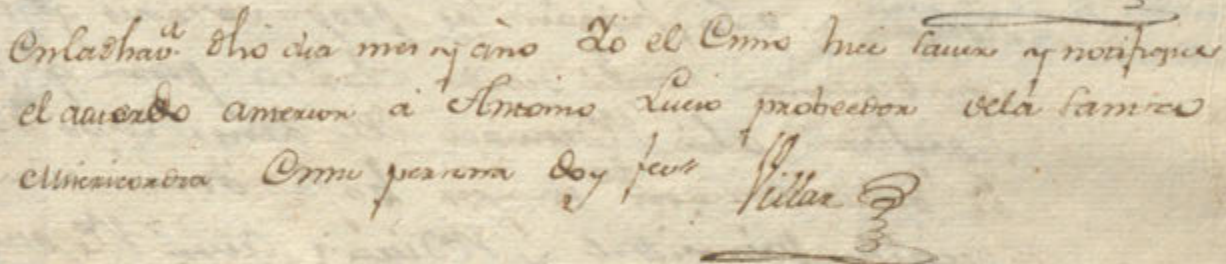 Enladhav.ª dho dia mes y año Yo el Essno hice saver y notifique
el acuerdo anterior à Antonio Lucio probeedor dela Carnice
Misericordia En su persona doy fee
Villar